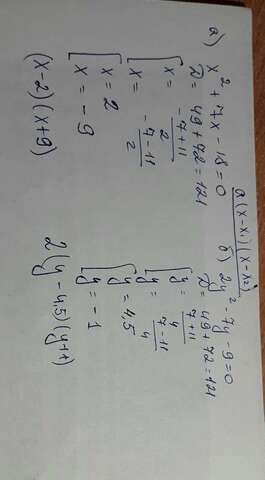 а) x² + 7x - 18 = 0
D = 49 + 72 = 121
x = (-7 + 11)/2
x = (-7 - 11)/2
x = 2
x = -9
(x-2)(x+9)
a(x-x₁)(x-x₂)
б) 2y² - 7y - 9 = 0
D = 49 + 72 = 121
y = (7 + 11)/4
y = (7 - 11)/4
y = 4,5
y = -1
2(y - 4,5)(y+1)